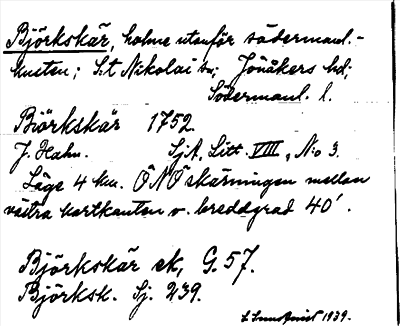 Björkskär, holme utanför södermanl.-
kusten; S:t Nikolai sn; Jönåkers hd;
Södermanl. l.
Biörkskär 1752.
J. Hahn. SjA, Litt. VIII, No 3.
Läge 4 km. ÖNÖ skärningen mellan
västra kartkanten o. breddgrad 40'.
Björkskär ek, G. 57.
Björksk. Sj. 239.
1939.